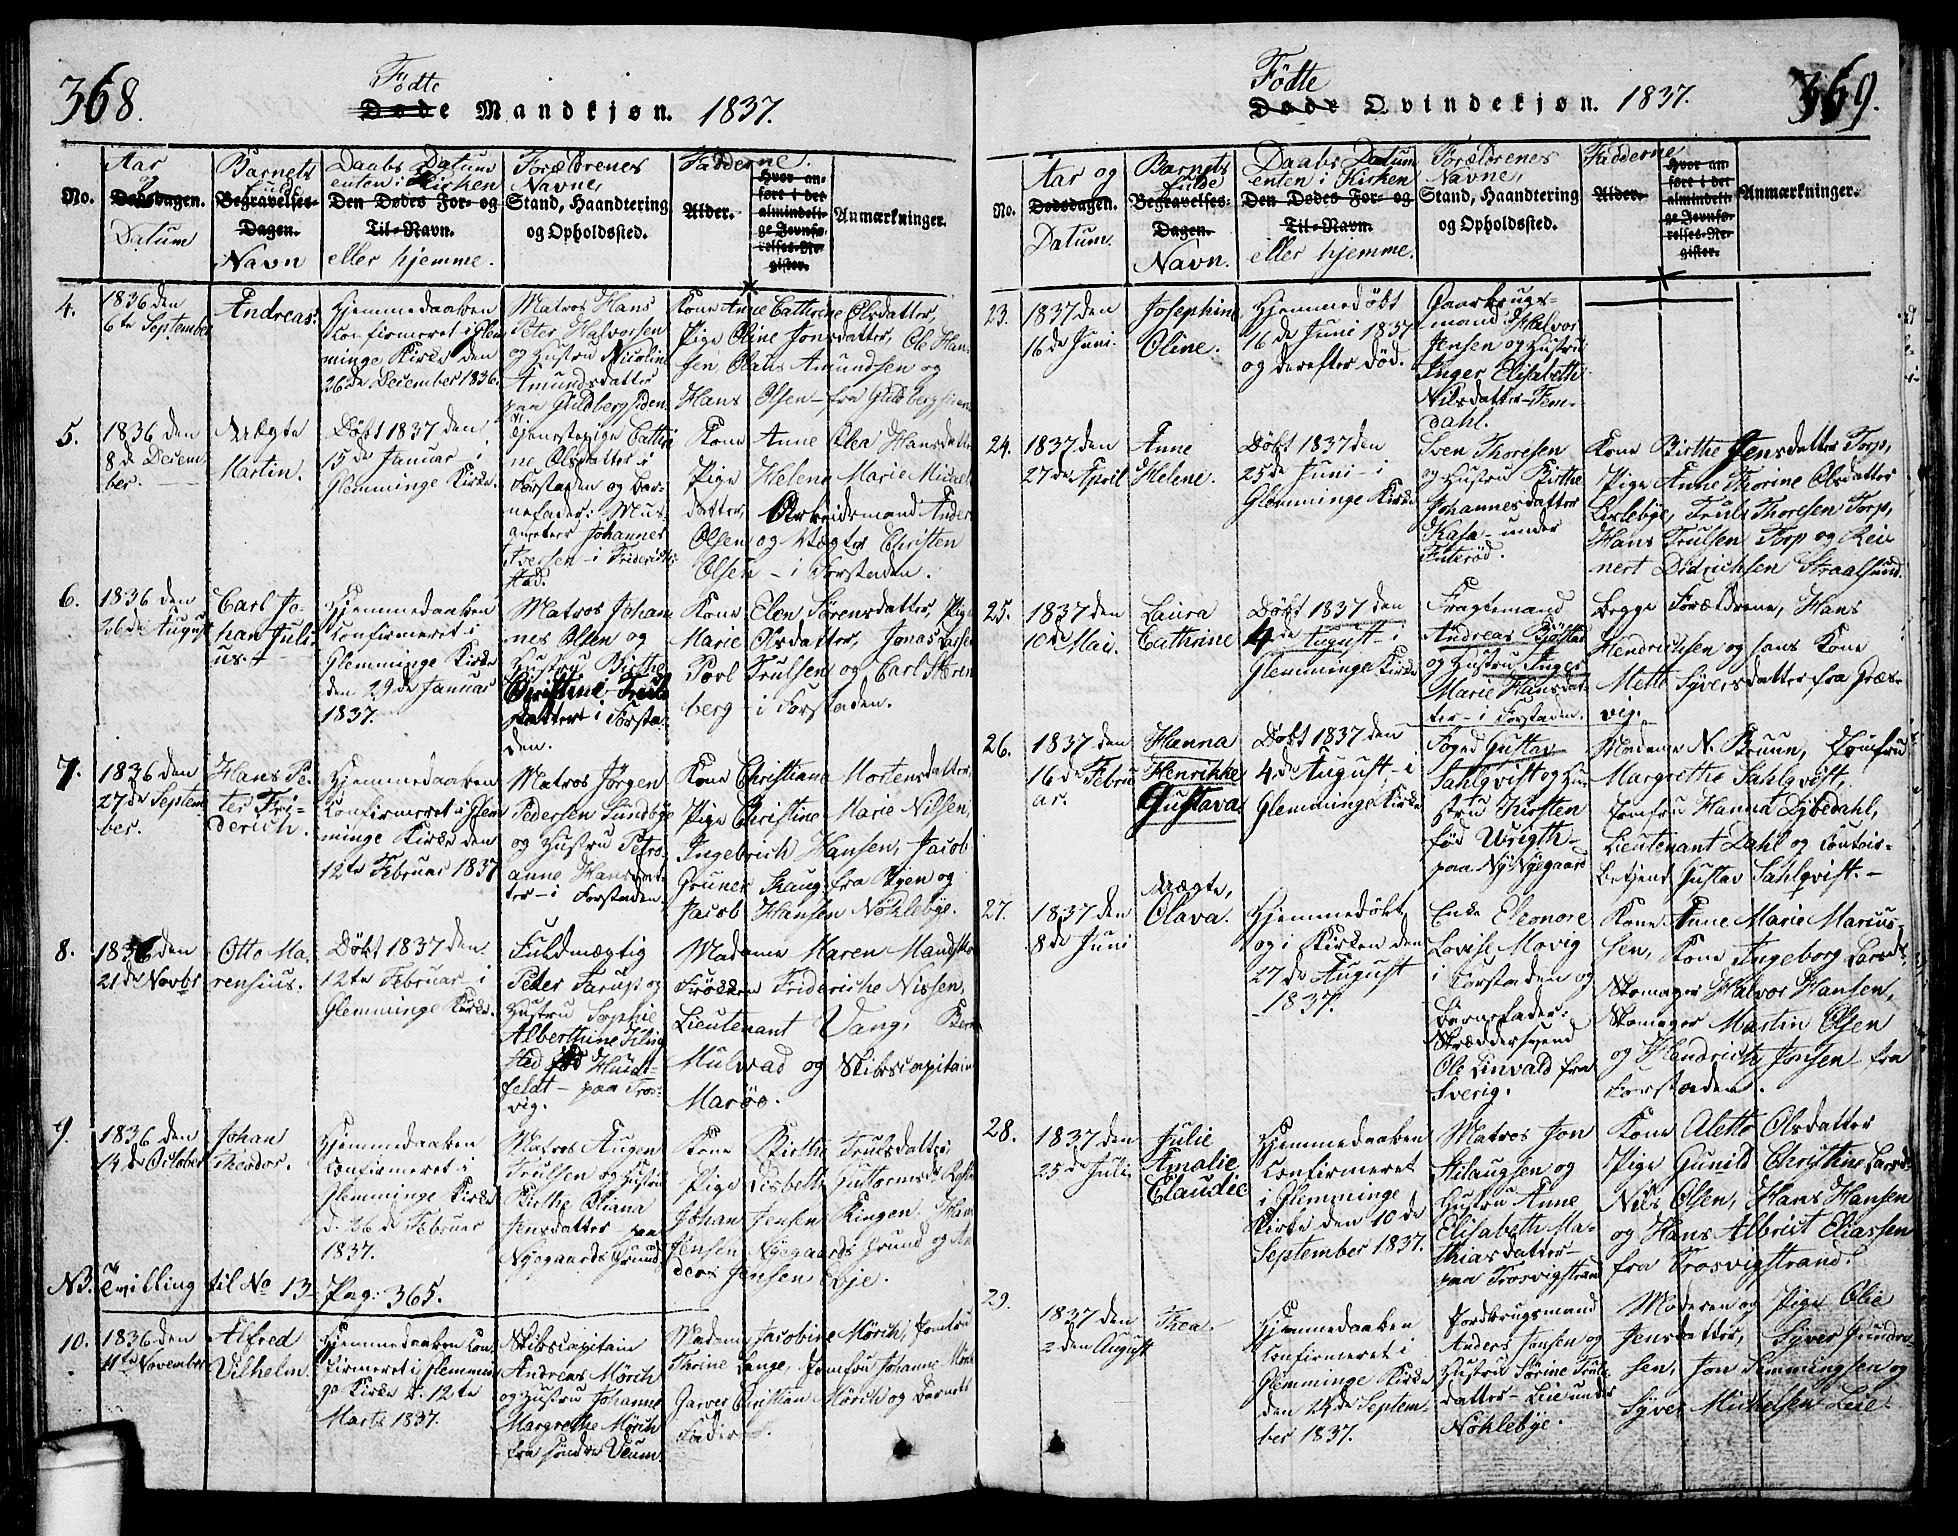 368.
Födte
Døde Mandkjøn. 1837.
No.
Aar og Dødsdagen. Datum
Barnets fulde Begravelses-Dagen. Navn
Daabs Datum enten i Kirken Den Dødes For- og Til-Navn. eller hjemme.
Forældrenes Navne, Stand, Haandtering og Opholdssted.
Fadderne.
Alder.
Hvor anført i det almindelige Jevnførelses-Register.
Anmærkninger.
4.
1836 den
6te September
Andreas.
Hjemmedaaben
Confirmeret i Glem
minge Kirke den
26de December 1836.
Matros Hans
Peter Halvorsen
og Hustru Nicoline
Amundsdatter
paa Guldbergsiden.
Kone Anne Cathrine Olsdatter,
Pige Oline Jonsdatter, Ole Han
sen, Olaus Amundsen og
Hans Olsen - fra Guldbergsiden
5.
1836 den
8de Decem
ber.
Uægte
Martin.
Døbt 1837 den
15de Januar i
Glemminge Kirke.
Tjenestepige Cathri
ne Olsdatter i
Forstaden og Bar-
nefader: Mus
queteer Johannes
Iversen - i Friderichs
stad.
Kone Anne Olea Hansdatter
Pige Helena Marie Michels
datter, Arbeidsmand Anders
Olsen og Vægter Christen
Olsen - i Forstaden.
6.
1836 den
26de August
Carl Jo-
han Juli-
us.
Hjemmedaaben
Confirmeret i
Glemminge Kirke
den 29de Januar
1837.
Matros Johan
nes Olsen og
Hustru Birthe
Christine Truls
datter i Forsta-
den.
Kone Elen Sörensdatter, Pige
Marie Olsdatter, Jonas Larsen
Povl Trulsen og Carl Steren
berg - i Forstaden.
7.
1836 den
27de Septem
ber.
Hans Pe-
ter Fri-
derich.
Hjemmedaaben
Confirmeret i Glem
minge Kirke den
12te Februar 1837
Matros Jörgen
Pedersen Sundbye
og Hustru Petro-
anne Hansdat-
ter - i Forstaden.
Kone Christiana Mortensdatter,
Pige Christine Marie Nilsen,
Ingebrich Hansen, Jacob
Gruner Haug fra Byen og
Jacob Hansen Nöhlebye.
8.
1836 den
21de Novbr
Otto Ma-
rensius.
Döbt 1837 den
12te Februar i
Glemminge Kirke.
Fuldmægtig
Peter Farup og
Hustru Sophie
Alberthine Kling
stad född Huidt-
feldt - paa Tros-
vig.
Madame Maren Mandskov
Fröken Friderikke Nissen,
Lieutenant Vang, Bernt
Mulvad og Skibscapitain
Maröe.
9.
1836 den
14de October
Johan
Theodor.
Hjemmedaaben
Confirmeret i
Glemminge Kirke
d. 26de Februar
1837.
Matros Augen
Trulsen og Hustru
Birthe Oliana
Jensdatter - paa
Nyegaards Grund
Kone Birthe Trulsdatter
Pige Lisbeth
Johan Jensen Ringen, Hans
Jensen Nyegaards Grund og An
ders Jensen Evje.
NB. Tvilling til No 13 Pag: 365.
10.
1836 den
11te November
Alfred
Vilhelm.
Hjemmedaaben Con
firmeret i Glemmin
ge Kirke d. 12te
Marts 1837.
Skibscapitain
Andreas Mörich
og Hustru Johanne
Margrethe Mörich
fra söndre Veum.
Madam Jacobine Mörich, Jomfru
Thrine Lange, Jomfru Johanne Mörich
Garver Christian Mörich og Barnets
Fader.
369.
Födte
Døde Qvindekjøn. 1837.
No.
Aar og Dødsdagen. Datum.
Barnets fulde Begravelses-Dagen. Navn.
Daabs Datum enten i Kirken Den Dødes For- og Til-Navn. eller hjemme.
Forældrenes Navne, Stand, Haandtering og Opholdssted.
Fadderne
Alder.
Hvor anført i det almindelige Jevnførelses-Register.
Anmærkninger.
23.
1837 den
16de Juni.
Josephine
Oline.
Hjemmedöbt
16de Juni 1837
og derefter död.
Gaardbrugs-
mand Halvor
Jensen og Hustru
Inger Elisabeth
Nilsdatter - Fem-
dahl.
24.
1837 den
27de April
Anne
Helene.
Döbt 1837 den
25de Juni - i
Glemminge Kirke
Sven Thoresen
og Hustru Birthe
Johannesdatter
Kasa - under
Enteröd.
Kone Birthe Jensdatter Torp,
Pige Anne Thorine Olsdatter
Lislebye, Truls Thoresen Torp,
Hans Trulsen Torp og Lei
nert Didrichsen Straalsund.
25.
1837 den
10de Mai.
Laura
Cathrine
Döbt 1837 den
4de August i
Glemminge Kirke
Fragtemand
Andreas Björstad
og Hustru Inger
Marie Hansdat-
ter - i Forstaden.
Begge Forældrene, Hans
Hendrichsen og hans Kone
Mette Syversdatter fra Græs-
vig.
26.
1837 den
16de Febru
ar.
Hanna
Henrikke
Gustava
Döbt 1837 den
4de August - i
Glemminge Kirke
Foged Gustav
Sahlqvist og Hu-
stru Kirsten
född Wrigth -
paa Ny Nyegaard
Madame N. Bruun, Jomfru
Margrethe Sahlqvist,
Jomfru Hanna Lybedahl,
Lieutenant Dahl og Contoir-
Betjent Gustav Sahlqvist. -
27.
1837 den
8de Juni
Uægte,
Olava.
Hjemmedöbt
og i Kirken den
27de August
1837.
Enke Eleonore
Lovise Movig
i Forstaden og
Barnefader:
Skræddersvend
Ole Linvald fra
Sverig.
Kone Anne Marie Marius-
sen, Kone Ingeborg Larsdr,
Skomager Halvor Hansen,
Skomager Martin Olsen
og Hendrich Jonsen fra
Forstaden.
28.
1837 den
25de Juli
Julie
Amalie
Claudie
Hjemmedaaben
Confirmeret
i Glemminge
Kirke den 10de
September 1837.
Matros Jon
Stilaugsen og
Hustru Anne
Elisabeth Ma-
thiasdatter -
paa Trosvigstrand
Kone Alette Olsdatter
Pige Gunild Christine Larsdr
Nils Olsen, Hans Hansen
og Hans Albrict Eliassen
fra Trosvigstrand.
29.
1837 den
2den August
Thea.
Hjemmedaaben
Confirmeret i
Glemminge Kirke
den 24de Septem
ber 1837.
Jordbrugsmand
Anders Jensen og
Hustru Sörine Truls
datter - Leie under
Nöhlebye.
Moderen og Pige Olie
Jensdatter, Syver Gunder-
sen, Jon Simmingsen og
Syver Michelsen Leie.